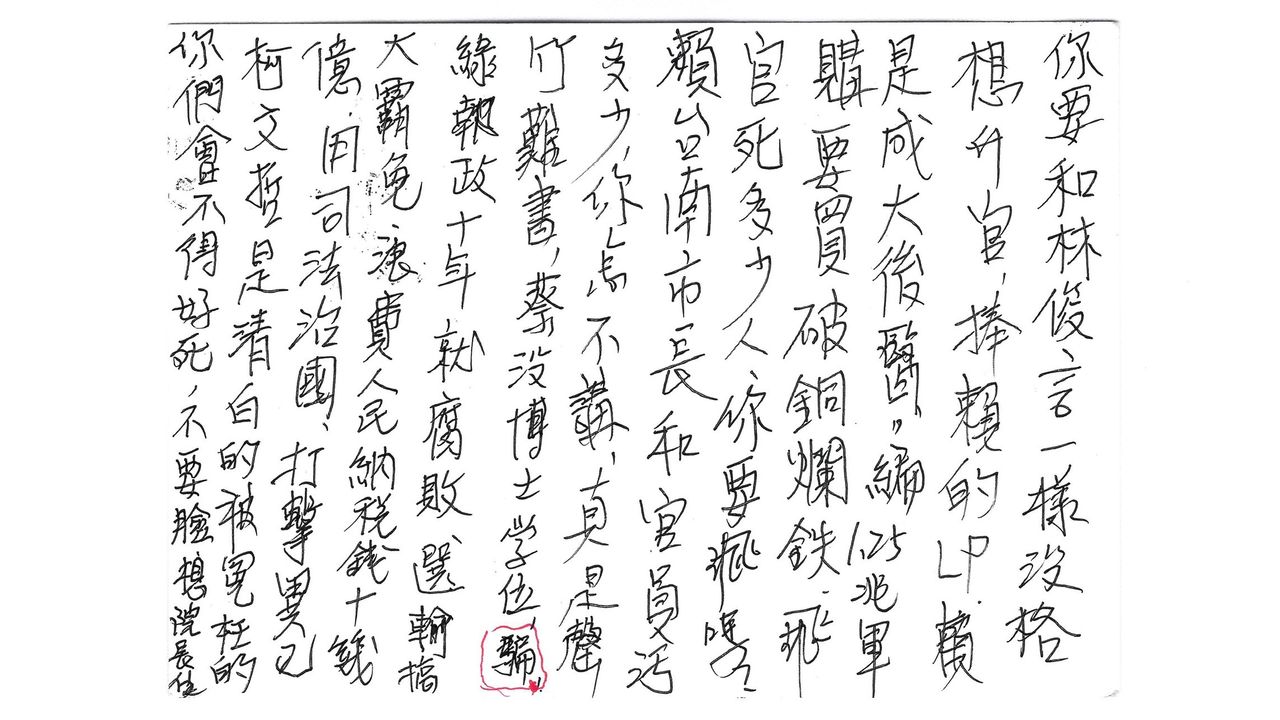 你要和林俊言一樣沒格
想升官，捧賴的LP.賴
是成大後醫，編1.25兆軍
購要買破銅爛鉄.飛
官死多少人、你要飛嗎？
賴台南市長和官員污
多少，你怎不講，真是罄
竹難書，蔡沒博士学位，騙，
綠執政十年就腐敗、選輸搞
大罷免、浪費人民納稅錢十幾
億.用司法治國、打擊異己
柯文哲是清白的被冤枉的
你們會不得好死，不要臉想院長位